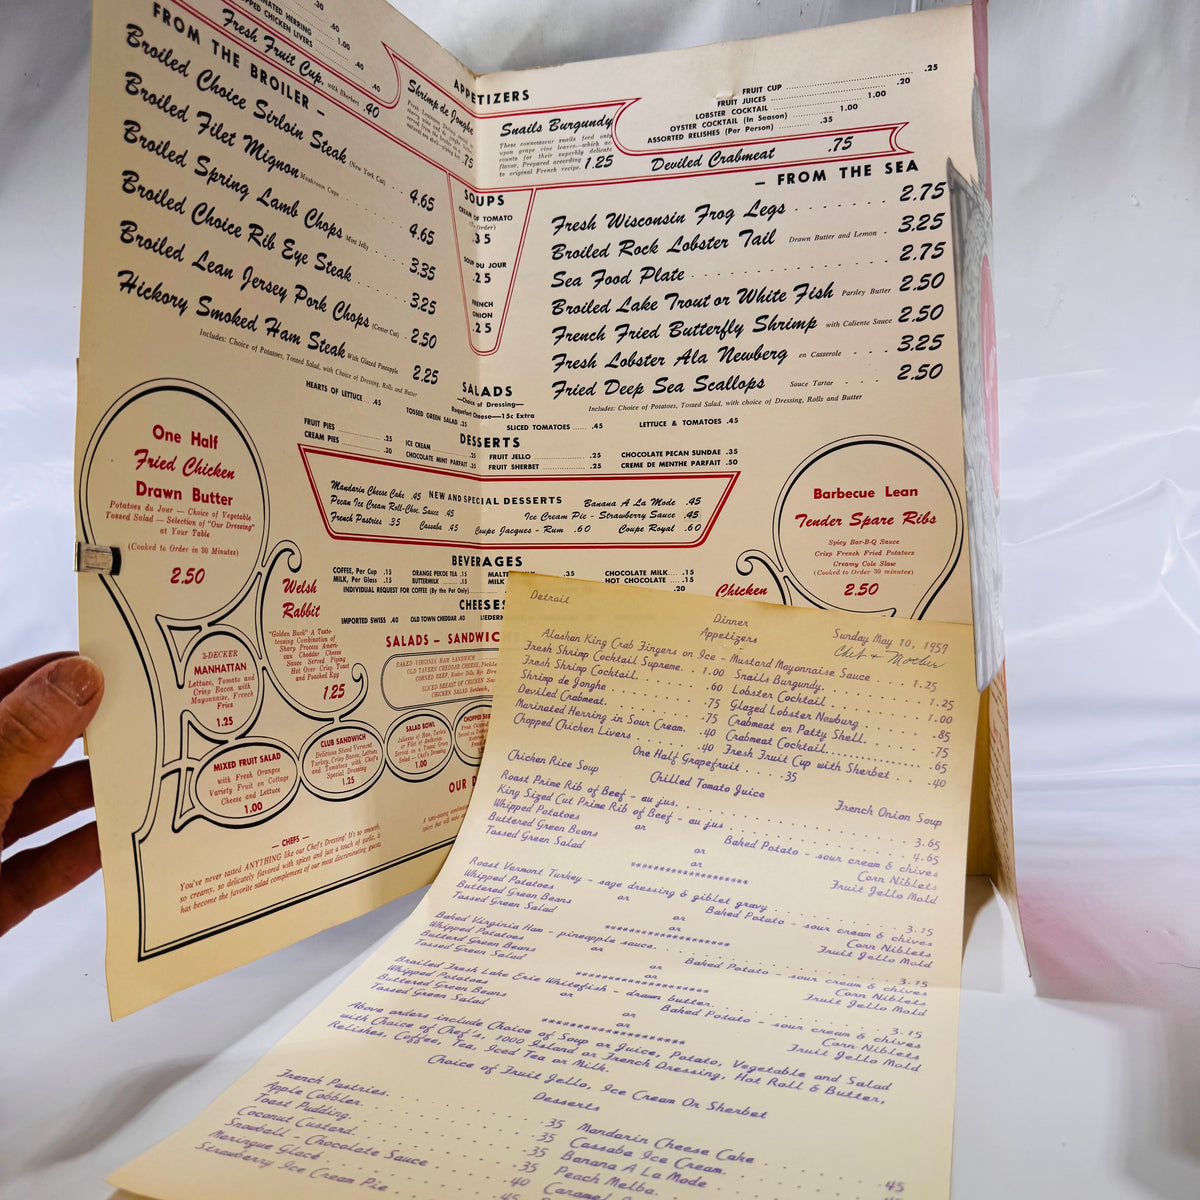 .30
.60
HERRING
CHICKEN LIVERS
1.00
.40
Fresh Fruit Cup, with Sherbet .40
.40
APPETIZERS
Shrimp de Jonghe
.75
Snails Burgundy
These connoisseur snails feed only
upon grape vine leaves—which ac-
counts for their superbly delicate
flavor. Prepared according
to original French recipe. 1.25
FRUIT CUP .25
FRUIT JUICES .20
LOBSTER COCKTAIL 1.00
OYSTER COCKTAIL (In Season) 1.00
ASSORTED RELISHES (Per Person) .35
Deviled Crabmeat .75
FROM THE BROILER —
Broiled Choice Sirloin Steak (New York Cut) 4.65
Broiled Filet Mignon Mushroom Caps 4.65
Broiled Spring Lamb Chops Mint Jelly 3.35
Broiled Choice Rib Eye Steak 3.25
Broiled Lean Jersey Pork Chops (Center Cut) 2.50
Hickory Smoked Ham Steak With Glazed Pineapple 2.25
Includes: Choice of Potatoes, Tossed Salad, with Choice of Dressing, Rolls and Butter
SOUPS
CREAM OF TOMATO
.35
SOUP DU JOUR
.25
FRENCH
ONION
.25
— FROM THE SEA
Fresh Wisconsin Frog Legs 2.75
Broiled Rock Lobster Tail Drawn Butter and Lemon 3.25
Sea Food Plate 2.75
Broiled Lake Trout or White Fish Parsley Butter 2.50
French Fried Butterfly Shrimp with Caliente Sauce 2.50
Fresh Lobster Ala Newberg en Casserole 3.25
Fried Deep Sea Scallops Sauce Tartar 2.50
Includes: Choice of Potatoes, Tossed Salad, with choice of Dressing, Rolls and Butter
SALADS
—Choice of Dressing—
Roquefort Cheese—15c Extra
HEARTS OF LETTUCE .45
TOSSED GREEN SALAD .35
SLICED TOMATOES .45
LETTUCE & TOMATOES .45
DESSERTS
FRUIT PIES .25
CREAM PIES .30
ICE CREAM
CHOCOLATE MINT PARFAIT .35
FRUIT JELLO .25
FRUIT SHERBET .25
CHOCOLATE PECAN SUNDAE .35
CREME DE MENTHE PARFAIT .50
NEW AND SPECIAL DESSERTS
Mandarin Cheese Cake .45
Pecan Ice Cream Roll-Choc. Sauce .45
French Pastries .35
Cassaba .45
Banana A La Mode .45
Ice Cream Pie - Strawberry Sauce .45
Coupe Jacques - Rum .60
Coupe Royal .60
BEVERAGES
COFFEE, Per Cup .15
MILK, Per Glass .15
ORANGE PEKOE TEA .15
BUTTERMILK .15
INDIVIDUAL REQUEST FOR COFFEE (By the Pot Only)
MALTE
.35
MILK
CHOCOLATE MILK .15
HOT CHOCOLATE .15
.20
CHEESES
IMPORTED SWISS .40
OLD TOWN CHEDDAR .40
LIEDERK
SALADS – SANDWICHES
BAKED VIRGINIA HAM SANDWICH
OLD TAVERN CHEDDAR CHEESE, Pickle
CORNED BEEF, Kosher Dills, Rye Bread
SLICED BREAST OF CHICKEN
CHICKEN SALAD Sandwich,
One Half
Fried Chicken
Drawn Butter
Potatoes du Jour — Choice of Vegetable
Tossed Salad — Selection of "Our Dressing"
at Your Table
(Cooked to Order in 30 Minutes)
2.50
Welsh
Rabbit
"Golden Buck" A Taste-
tensing Combination of
Sharp Process Ameri-
can Cheddar Cheese
Sauce Served Piping
Hot Over Crisp Toast
and Poached Egg
1.25
3-DECKER
MANHATTAN
Lettuce, Tomato and
Crisp Bacon with
Mayonnaise, French
Fries
1.25
MIXED FRUIT SALAD
with Fresh Oranges
Variety Fruit on Cottage
Cheese and Lettuce
1.00
CLUB SANDWICH
Delicious Sliced Vermont
Turkey, Crisp Bacon, Lettuce
and Tomatoes with Chef's
Special Dressing
1.25
SALAD BOWL
Julienne of Ham, Turkey
or Filet of Anchovies
Served on a Tossed Green
Salad — Chef's Dressing
1.00
CHOPPED
OUR
— CHEFS —
You've never tasted ANYTHING like our Chef's Dressing! It's so smooth,
so creamy, so delicately flavored with spices and just a touch of garlic, it
has become the favorite salad complement of our most discriminating guests
Barbecue Lean
Tender Spare Ribs
Spicy Bar-B-Q Sauce
Crisp French Fried Potatoes
Creamy Cole Slaw
(Cooked to Order 30 minutes)
2.50
Chicken
Detroit
Dinner
Sunday May 10, 1959
Chet & Mother
Appetizers
Alaskan King Crab Fingers on Ice - Mustard Mayonnaise Sauce 1.25
Fresh Shrimp Cocktail Supreme 1.00 Snails Burgundy 1.25
Fresh Shrimp Cocktail .60 Lobster Cocktail 1.00
Shrimp de Jonghe .75 Glazed Lobster Newburg .85
Deviled Crabmeat .75 Crabmeat en Patty Shell .75
Marinated Herring in Sour Cream .40 Crabmeat Cocktail .65
Chopped Chicken Livers .40 Fresh Fruit Cup with Sherbet .40
One Half Grapefruit .35
Chicken Rice Soup Chilled Tomato Juice French Onion Soup
Roast Prime Rib of Beef - au jus 3.65
King Sized Cut Prime Rib of Beef - au jus 4.65
Whipped Potatoes or Baked Potato - sour cream & chives
Buttered Green Beans or Corn Niblets
Tossed Green Salad or Fruit Jello Mold
********************
Roast Vermont Turkey - sage dressing & giblet gravy 3.15
Whipped Potatoes or Baked Potato - sour cream & chives
Buttered Green Beans or Corn Niblets
Tossed Green Salad or Fruit Jello Mold
********************
Baked Virginia Ham - pineapple sauce 3.15
Whipped Potatoes or Baked Potato - sour cream & chives
Buttered Green Beans or Corn Niblets
Tossed Green Salad or Fruit Jello Mold
********************
Broiled Fresh Lake Erie Whitefish - drawn butter 3.15
Whipped Potatoes or Baked Potato - sour cream & chives
Buttered Green Beans or Corn Niblets
Tossed Green Salad or Fruit Jello Mold
********************
Above orders include Choice of Soup or Juice, Potato, Vegetable and Salad
with Choice of Chef's, 1000 Island or French Dressing, Hot Roll & Butter,
Relishes, Coffee, Tea, Iced Tea or Milk.
Choice of Fruit Jello, Ice Cream Or Sherbet
Desserts
French Pastries .35 Mandarin Cheese Cake .45
Apple Cobbler .35 Cassaba Ice Cream
Toast Pudding .35 Banana A La Mode
Coconut Custard .35 Peach Melba
Snowball - Chocolate Sauce .40 Caramel
Meringue Glacé .45
Strawberry Ice Cream Pie